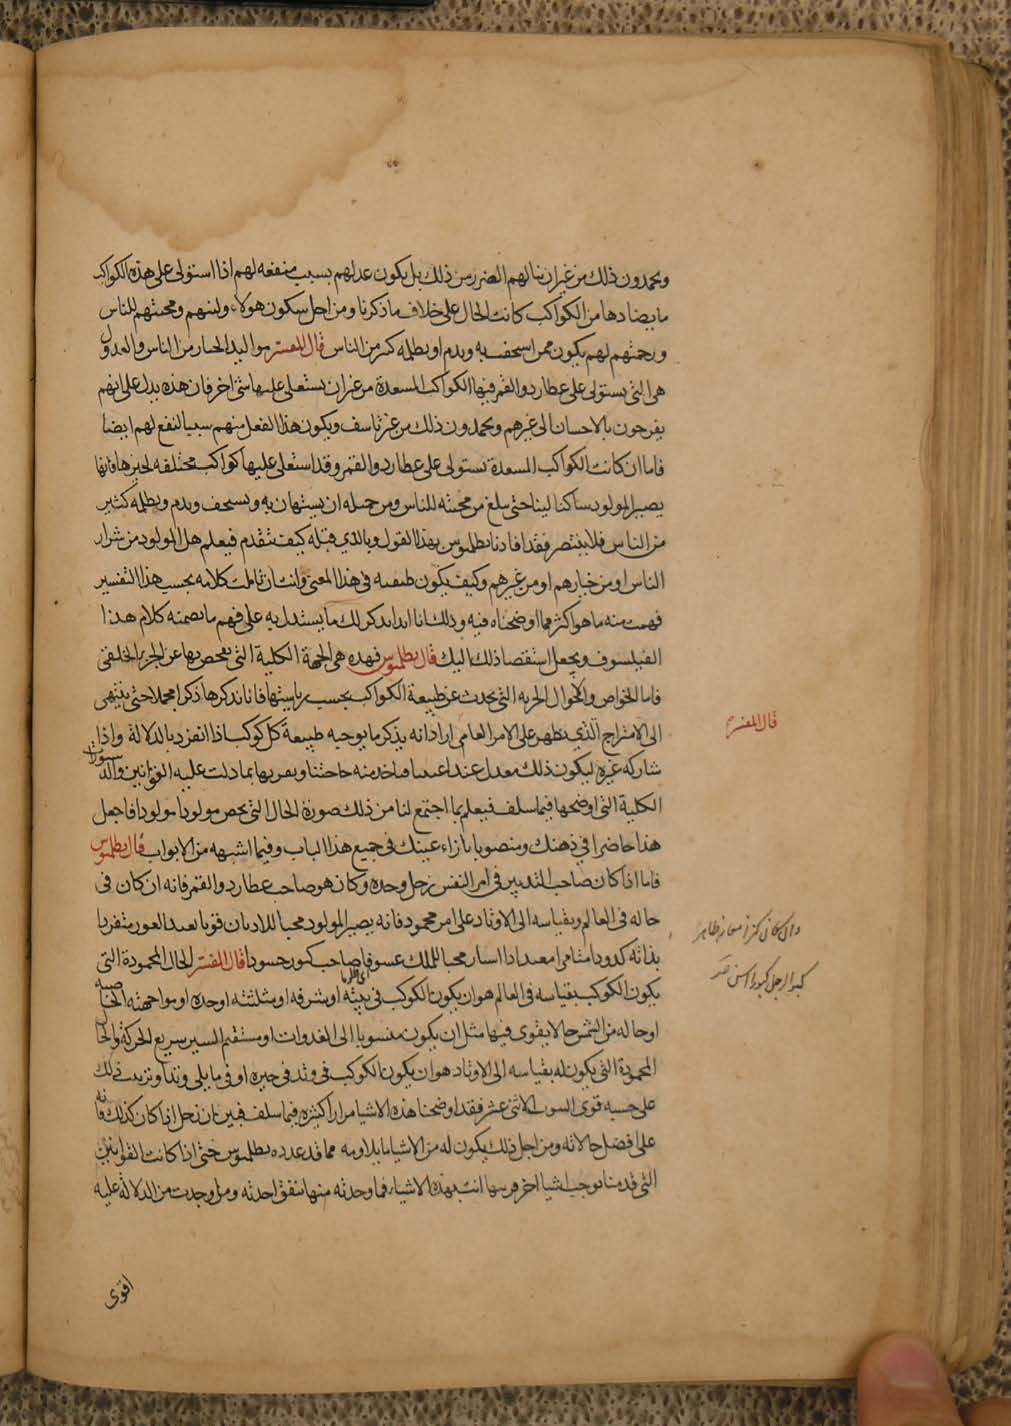 ويحمدون ذلك من غير ان ينالهم الضرر من ذلك بل يكون عدلهم بسبب منفعه لهم اذا استولى على هذه الكواكب
ما يضادها من الكواكب كانت الحال على خلاف ما ذكرنا ومن اجل سكون هولاء ولينهم ومحبتهم للناس
ورحمتهم لهم يكون ممن استخف به ويذم او يظلمه كثير من الناس قال المفسر مواليد الخيار من الناس والعدول
هى التى يستولى على عطارد والقمر فيها الكواكب المسعدة من غير ان يستعلى عليها شى اخر فان هذه يدل على انهم
يفرحون بالاحسان الى غيرهم ويحمدون ذلك من غير تاسف ويكون هذا الفعل منهم سببا لنفع لهم ايضا
فاما ان كانت الكواكب المسعدة تستولى على عطارد والقمر وقد استعلى عليها كواكب مختلفه لحيزها فانها
يصير المولود ساكنا لينا حتى يبلغ من محبته للناس ومن حمله ان يستهان به ويستخف ويذم ويظلمه كثير
من الناس فلا ينتصر فقد افادنا بطلميوس بهذا القول وبالذي قبله كيف نتقدم فيعلم هل المولود من شرار
الناس او من خيارهم او من غيرهم وكيف يكون طبقته فى هذا المعنى وانت ان تاملت كلامه بحسب هذا التفسير
فهمت منه ما هو اكثر مما اوضحناه فيه وذلك انا ابدا نذكر لك ما يستدل به على فهم ما تضمنه كلام هذا
الفيلسوف ويجعل استقصا ذلك اليك قال بطلميوس فهذه هى الجهة الكلية التى يفحص بها عن الحريز الخلقى
فاما الخواص والاحوال الحريه التى يحدث عن طبيعة الكواكب بحسب رياستها فانا نذكرها ذكرا مجملا حتى ينتهى
الى الامتزاج الذي يظهر على الامر العامى اراد انه يذكر ما يوجبه طبيعة كل كوكب اذا انفرد بالدلالة واذا
شاركه غيره ليكون ذلك معدل عندا فياخذ منه حاجتنا ونقرنها بما دلت عليه القوانين والدستورات
الكلية التى اوضحها فيما سلف فيعلم بما اجتمع لنا من ذلك صورة الحال التى يخص مولودا مولودا فاجعل
هذا حاضرا فى ذهنك ومنصوبا بازاء عينك فى جميع هذا الباب وفيما اشبهه من الابواب قال بطلميوس
فاما اذا كان صاحب التدبير فى امر النفس زحل وحده وكان هو صاحب عطارد والقمر فانه ان كان فى
حاله فى العالم وبقياسه الى الاوتاد على امر محمود فانه يصير المولود محبا للاديان قويا بعيد الغور متفردا
بذاته كدودا محبا للملك عسوفا صاحب كنوز حسودا قال المفسر الحال المحمودة التى
يكون الكوكب بقياسه فى العالم هو ان يكون الكوكب فى بيته او شرفه او مثلثته او حده او مواجهته الخاصيه
او حاله من الشمس حالا يقوى فيها مثل ان يكون منسوبا الى الغدوات او مستقيم السير سريع الحركة والحال
المحمودة التى يكون له بقياسه الى الاوتاد هو ان يكون الكوكب فى وتد فى حيزه او فى ما يلى وتدا ونزيد فى ذلك
على حسبه قوى البيوت الاثنى عشر فقد اوضحنا هذه الاشيا مرارا كثيره فيما سلف فبين ان زحل اذا كان كذلك فانه
على افضل حالاته ومن اجل ذلك يكون له من الاشيا ما يلاومه مما قد عدده بطلميوس حتى اذا كانت القوانين
التى قدمنا توجب اشيا اخر قرنتها انت بهذه الاشياء فما وجدته منها متفق احدثه ومن وجدت من الدلالة عليه
اقوى
قال المفسر